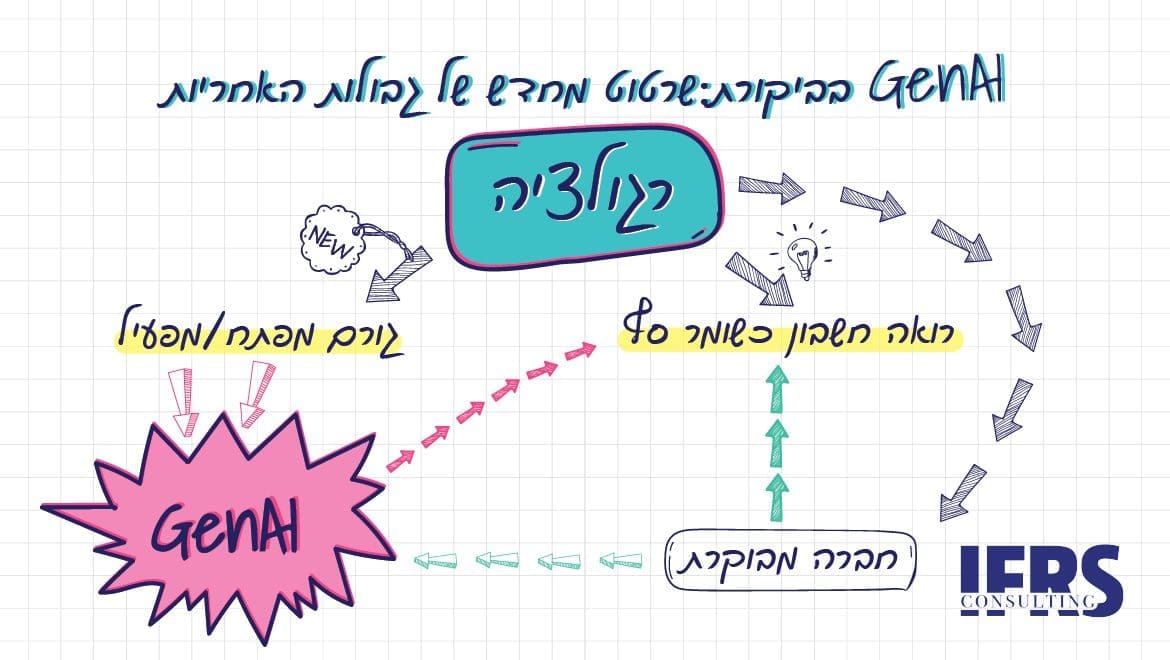 GenAI בביקורת:שרטוט מחדש של גבולות האחריות
רגולציה
NEW
גורם מפתח/מפעיל
רואה חשבון כשומר סף
GenAI
חברה מבוקרת
IFRS
CONSULTING